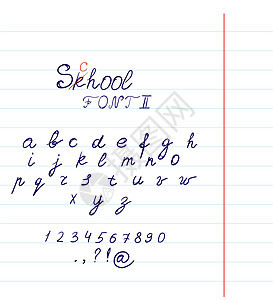 c
Skhool
FONT II
a b c d e f g h
i j k l m n o
p q r s t u v w
x y z
1 2 3 4 5 6 7 8 9 0
. , ? ! @